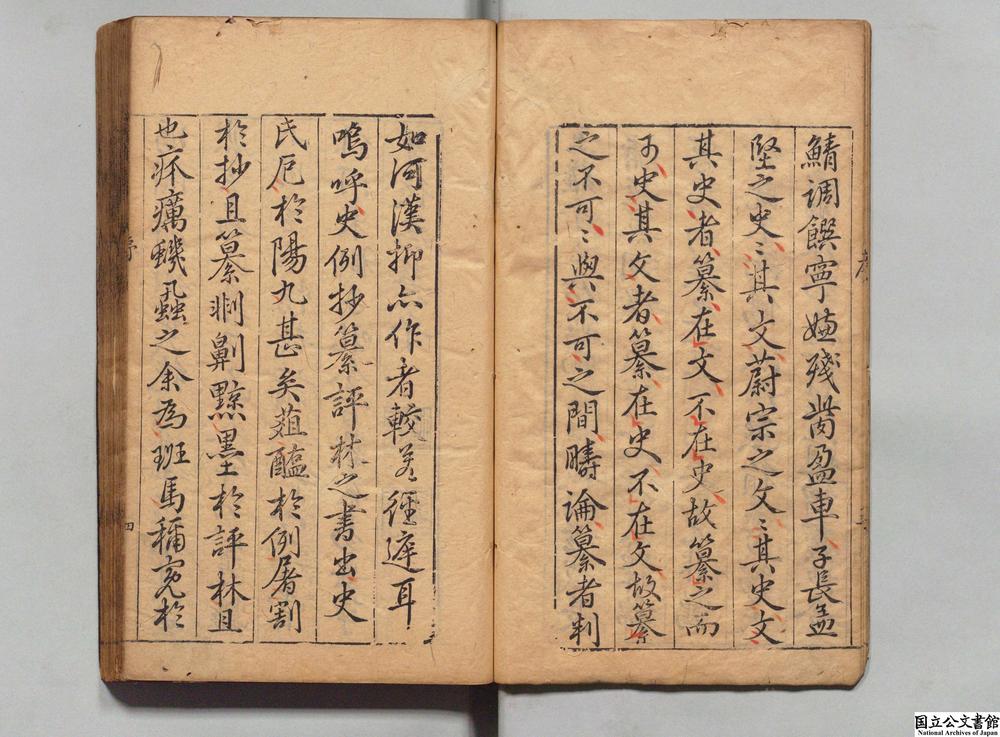 鯖調饌寧嬑殘嵗盈車子長孟
堅之史〻其文蔚宗之文〻其史文
其史者纂在文不在史故纂之而
可史其文者纂在史不在文故纂
之不可〻與不可之間疇論纂者判
如河漢抑亦作者較若徑遅耳
嗚呼史例抄纂評林之書出史
氏厄於陽九甚矣葅醢於例屠割
於抄且纂刵劓黥墨於評林且
也疢癘蟣蝨之余為班馬稱寃於
四
国立公文書館
National Archives of Japan